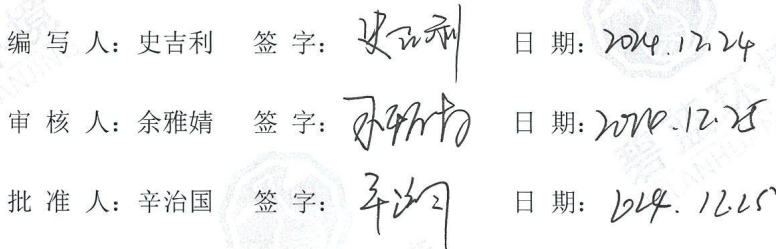 编 写 人：史吉利 签 字：史吉利 日 期：2024.12.24
审 核 人：余雅婧 签 字： 日 期：2024.12.25
批 准 人：辛治国 签 字：辛治国 日 期：2024.12.25